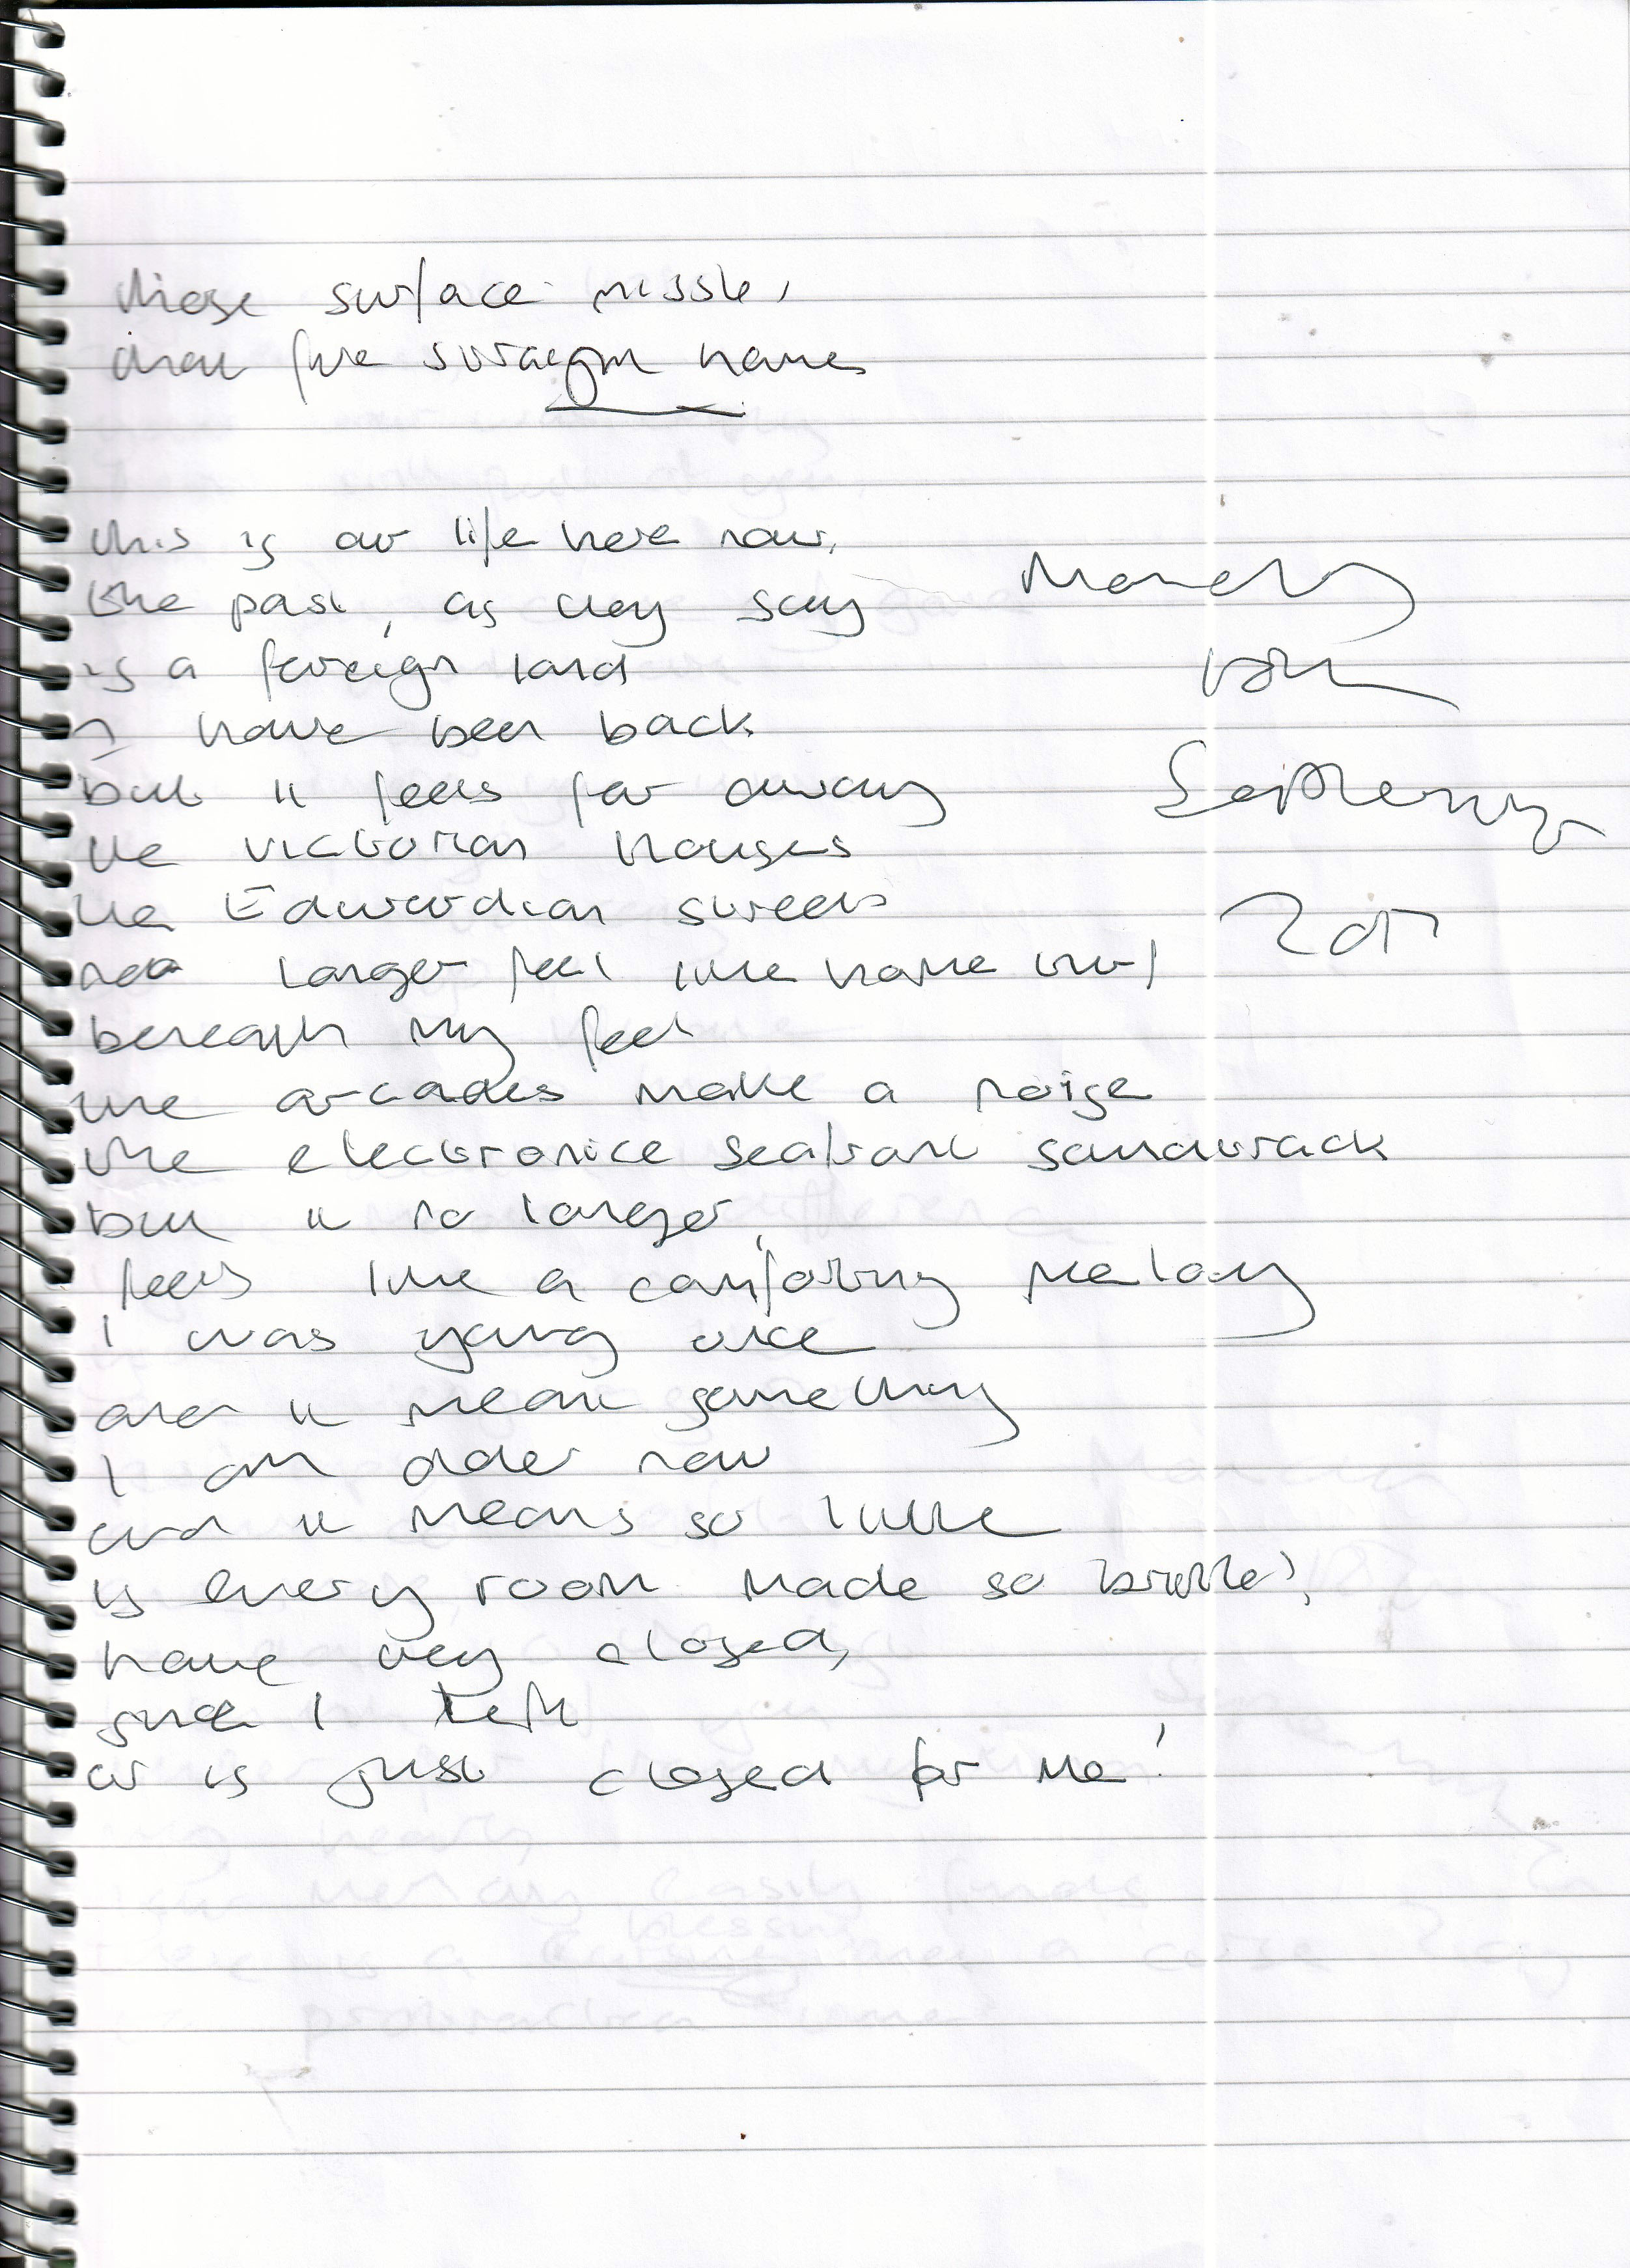 those surface missle,
that fire straight home
this is our life here now,
the past, as they say
is a foreign land
I have been back
but it feels far away
the victorian houses
the Edwardian streets
no longer feel like home turf
beneath my feet
the arcades make a noise
the electronice seafront soundtrack
but it no longer,
feels like a comforting melody
I was young once
and it meant something
I am older now
and it means so little
is every room made so brittle?
have they closed,
since I left
or is just closed for me!
Monday
18th
September
2017